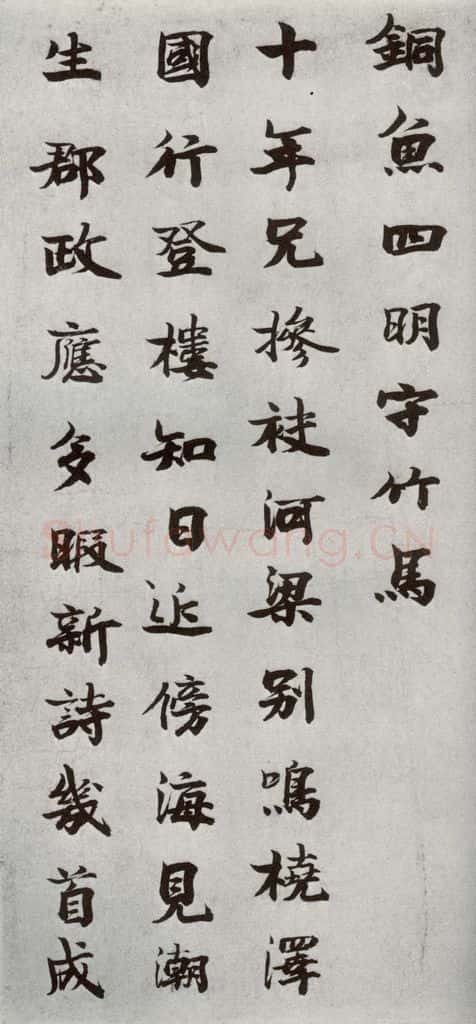 銅魚四明守竹馬
十年兄摻袂河梁別鳴橈澤
國行登樓知日近傍海見潮
生郡政應多暇新詩幾首成
Shufawang.CN